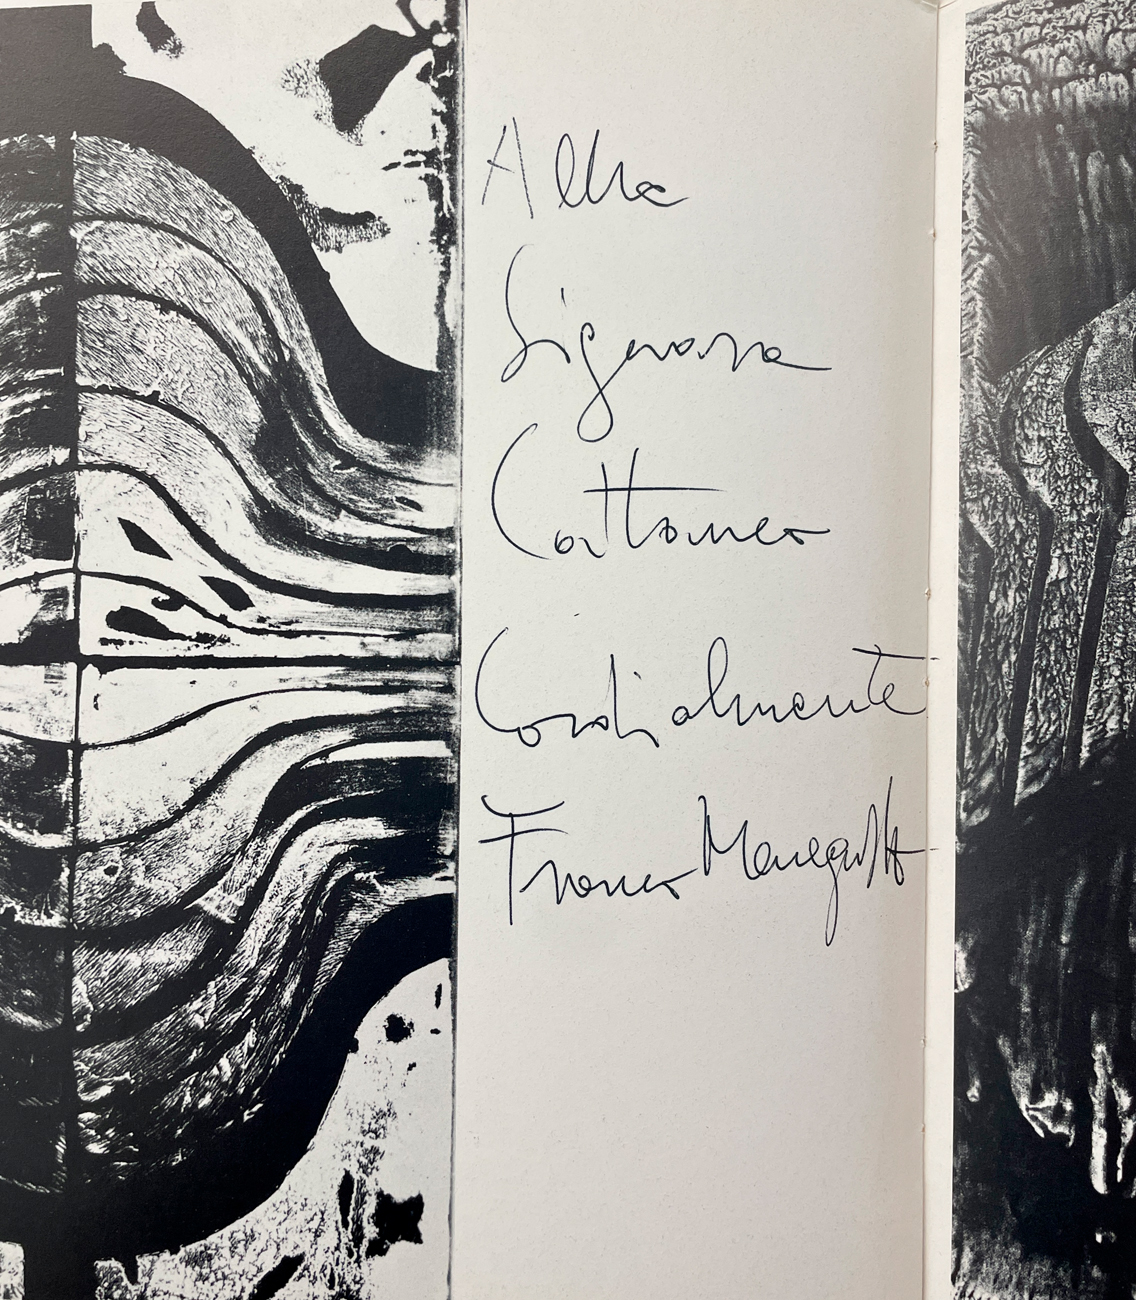 Alla
Signora
Cattaneo
Cordialmente
Franco Meneguzzo